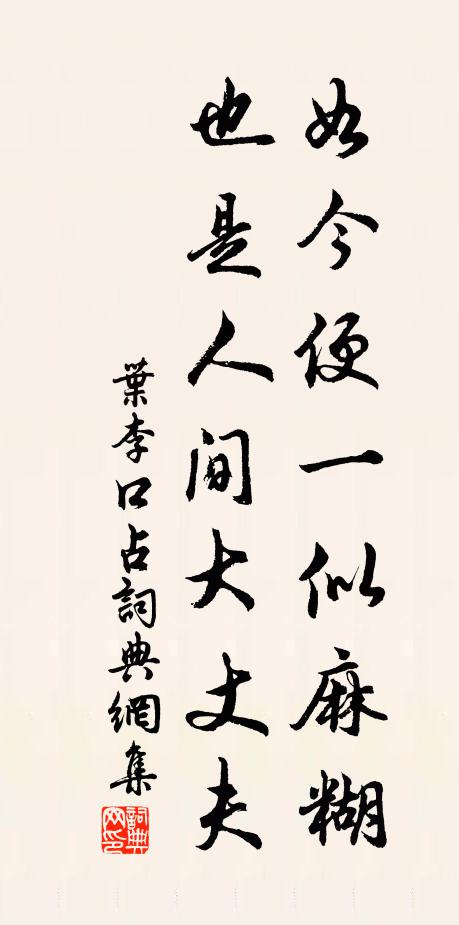 如今便一似麻糊
也是人间大丈夫
葉李口占詞典網集
詞典網印